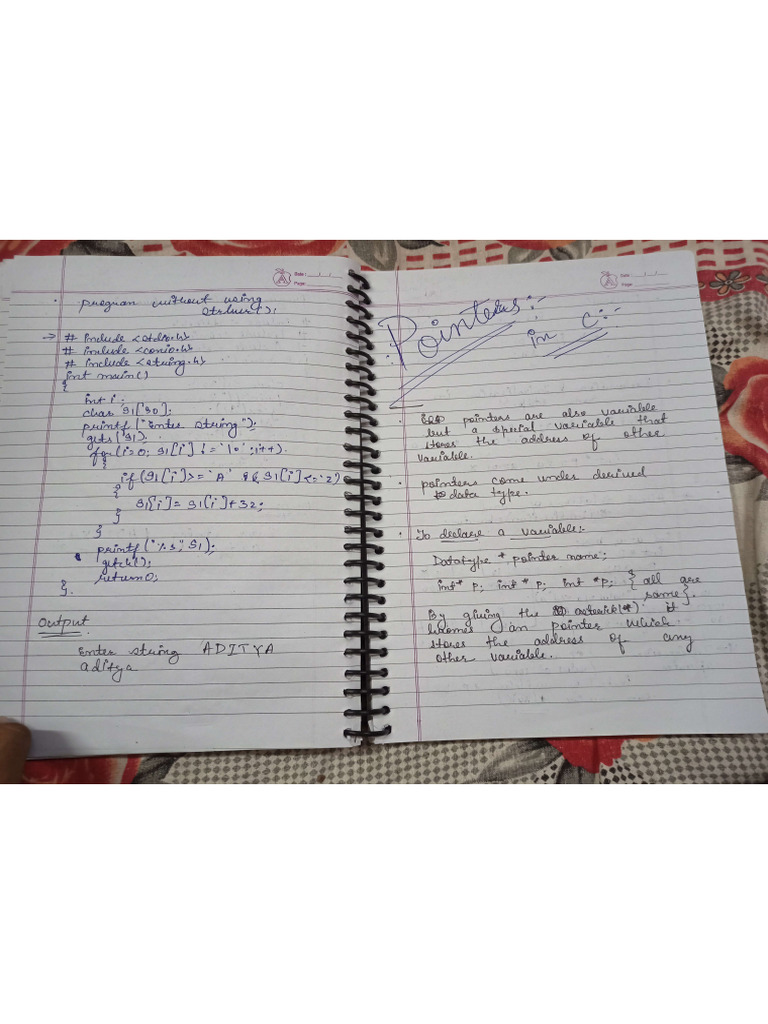 Date: __/__/__
Page:
. program without using
strlwr();
→ # include <stdio.h>
# include <conio.h>
# include <string.h>
int main()
{
int i;
char S1[30];
printf("Enter string");
gets(S1);
for(i=0; S1[i] != '\0'; i++).
{
if(S1[i]>='A' && S1[i]<='Z')
{
S1[i]= S1[i]+32;
}
}
printf("%s", S1);
getch();
return 0;
}.
Output
Enter string ADITYA
aditya
Date: __/__/__
Page:
:Pointers:-
in C:-
. pointers are also variable
but a special variable that
stores the address of other
variable.
. pointers come under derived
data type.
. To declare a variable:-
Datatype * pointer name;
int* p; int * p; int *p; { all are
same}.
By giving the asterick(*) it
becomes an pointer which
stores the address of any
other variable.